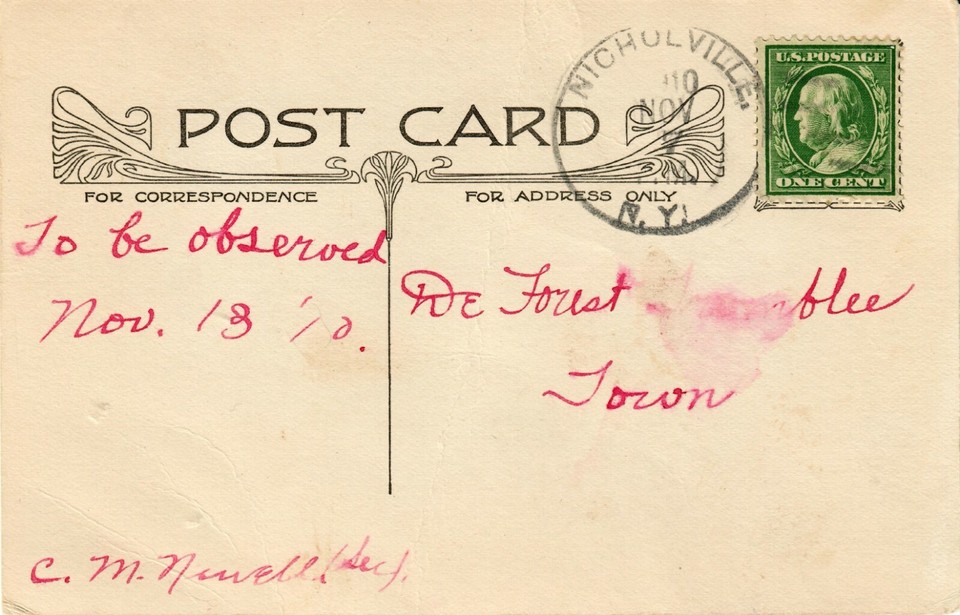 NICHOLVILLE.
'10
NOV
N.Y.
U.S. POSTAGE
ONE CENT
POST CARD
FOR CORRESPONDENCE
FOR ADDRESS ONLY
To be observed
Nov. 13 '10.
De Forest
Town
C. M. Newell (Sec).